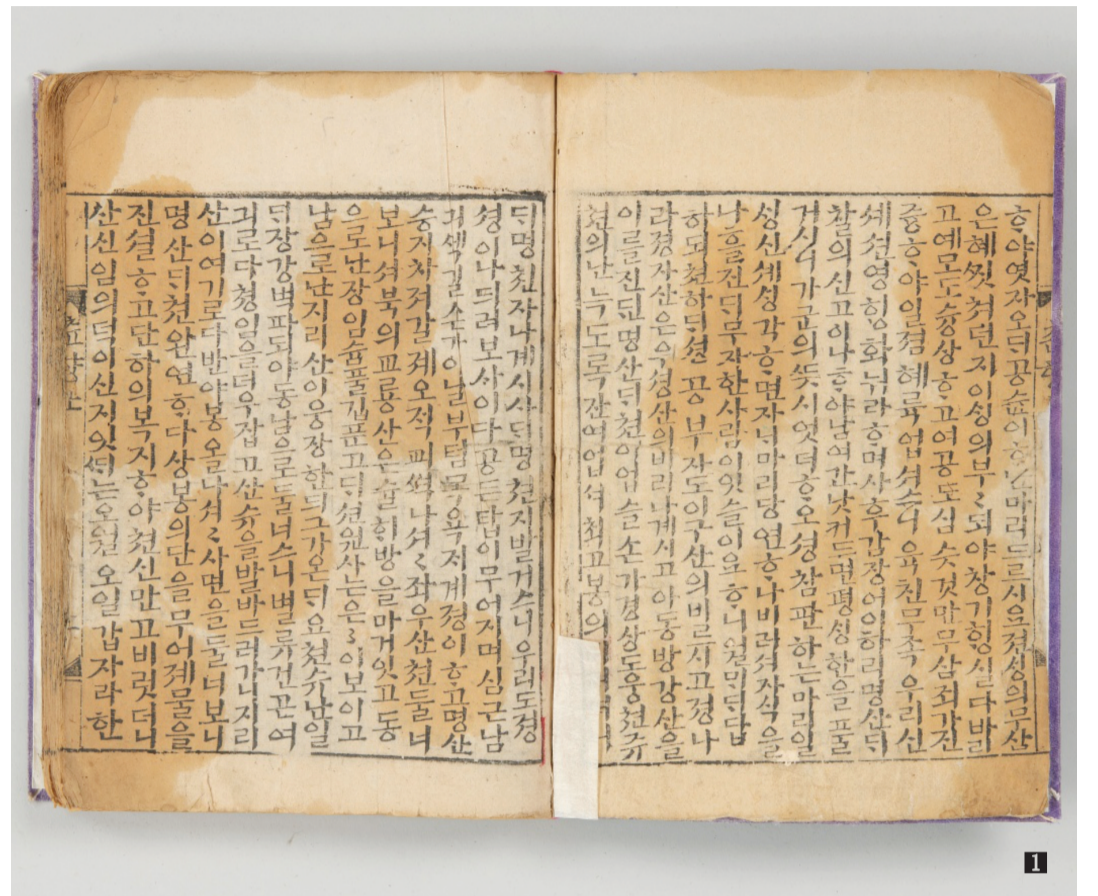 ᄒᆞ야엿자오ᄃᆡ공슌이ᄒᆞ마리드르시요젼ᄉᆡᆼ의무산
은혜ᄭᅵ쳐던지이ᄉᆡᆼ의부〻되야창기ᄒᆡᆼ실다발
고예모도슝상ᄒᆞ고여공도심슷것만무삼죄가진
즁ᄒᆞ야일졈혜륙업셔스니육친무족우리신
셰션영ᄒᆡᆼ화뉘라ᄒᆞ며사후감장어이하리명산ᄃᆡ
찰의신고이나ᄒᆞ야남여간낫커드면평ᄉᆡᆼ한을풀
거시니가군의ᄯᅳᆺ시엇더ᄒᆞ오셩참판하는마리일
ᄉᆡᆼ신셰ᄉᆡᆼ각ᄒᆞ면자ᄂᆡ마리당연ᄒᆞ나비러셔자식을
나흘진ᄃᆡ무자한사ᄅᆞᆷ이잇슬이요ᄒᆞ니월ᄆᆡᄃᆡ답
하되쳔하ᄃᆡ셩공부자도이구산의비르시고졍나
라졍자산은우셩산의비러나계시고아동방강산을
이를진ᄃᆡ명산ᄃᆡ쳔이업슬손가경상도웅쳔쥬
쳔의난늑도록자여업셔최고봉의
ᄃᆡ명쳔자나계시사ᄃᆡ명쳔지발거스니우리도졍
셩이나듸려보사이다공든탑이무어지며심근남
긔ᄭᅥᆨ길손가이날부텀목욕져계졍이ᄒᆞ고명산
승지차져갈졔오작괴ᄶᅥᆨ나셔〻좌우산쳔둘너
보니셔북의교룡산은슐ᄒᆡ방을마거잇고동
으로난장임슈풀깁푼고ᄃᆡ션원사는은〻이보이고
남으로난지리산이웅장한ᄃᆡ그가온ᄃᆡ요쳔슈난일
ᄃᆡ장강벽파되야동남으로둘너스니별류건곤여
긔로다쳥임을더우잡고산슈을발바드러가니지리
산이여기로다반야봉오올나셔〻사면을둘너보니
명산ᄃᆡ쳔완연ᄒᆞ다상봉의단을무어졔물을
진셜ᄒᆞ고단하의복지ᄒᆞ야쳔신만고비럿더니
산신임의덕이신지잇ᄯᆡ는오월오일갑자라한